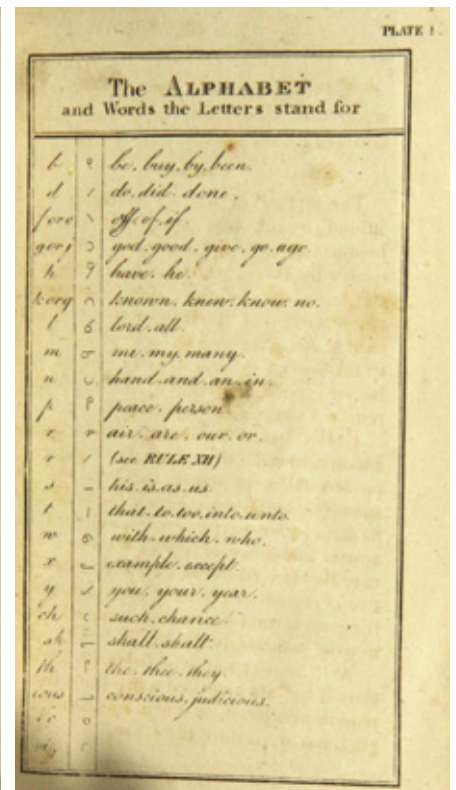 PLATE 1.
The ALPHABET
and Words the Letters stand for
b be. buy. by. been.
d do. did. done.
f or v off. of. if.
g or j god. good. give. go. ago.
h have. he.
k or q known. knew. know. no.
l lord. all.
m me. my. many.
n hand. and. an. in.
p peace. person
r air. are. our. or.
r (see RULE XII)
s his. is. as. us.
t that. to. too. into. unto.
w with. which. who.
x example. accept.
y you. your. year.
ch such. chance.
sh shall. shalt.
th the. thee. they.
ious conscious. judicious.